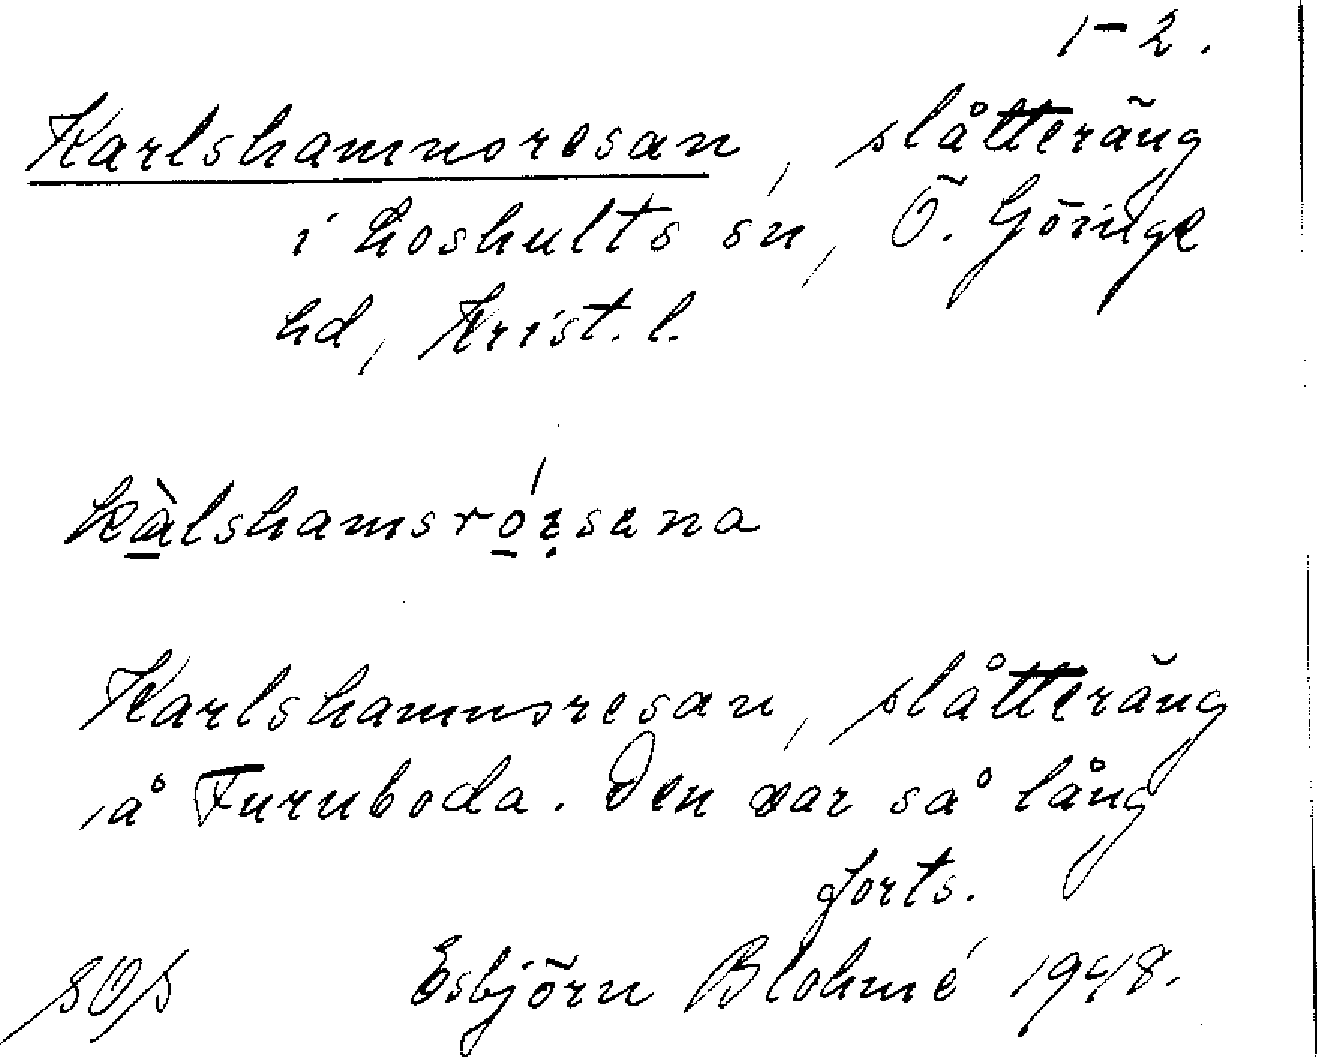 1-2.
Karlshamnsresan, slåtteräng
i Loshults sn, Ö. Göinge
hd, Krist. l.
Karlshamnsresan, slåtteräng
å Furuboda. Den var så lång
forts.
Esbjörn Blohmé 1948.